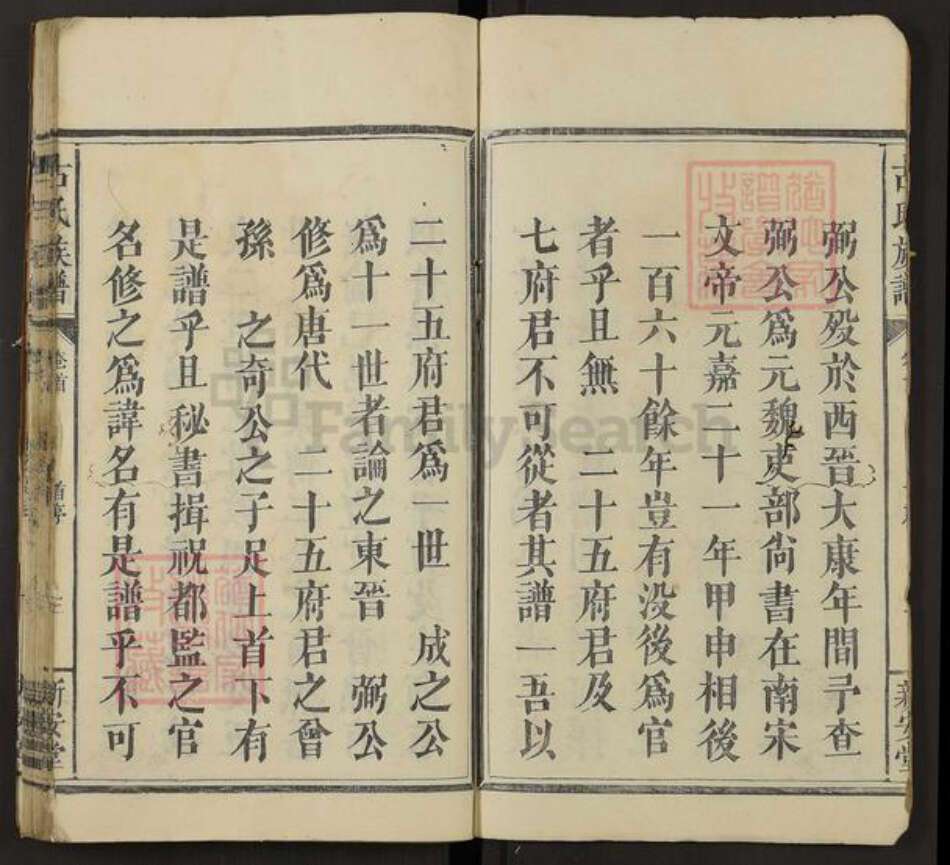 弼公歿於西晉大康年間予查
弼公爲元魏吏部尙書在南宋
文帝元嘉二十一年甲申相後
一百六十餘年豈有没後爲官
者乎且無 二十五府君及
七府君不可從者其譜一吾以
二十五府君爲一世 成之公
爲十一世者論之東晉 弼公
修爲唐代 二十五府君之曾
孫 之奇公之子足上首下有
是譜乎且秘書揖祝都監之官
名修之爲諱名有是譜乎不可
古氏族譜
卷首
首序
新安堂
FamilySearch